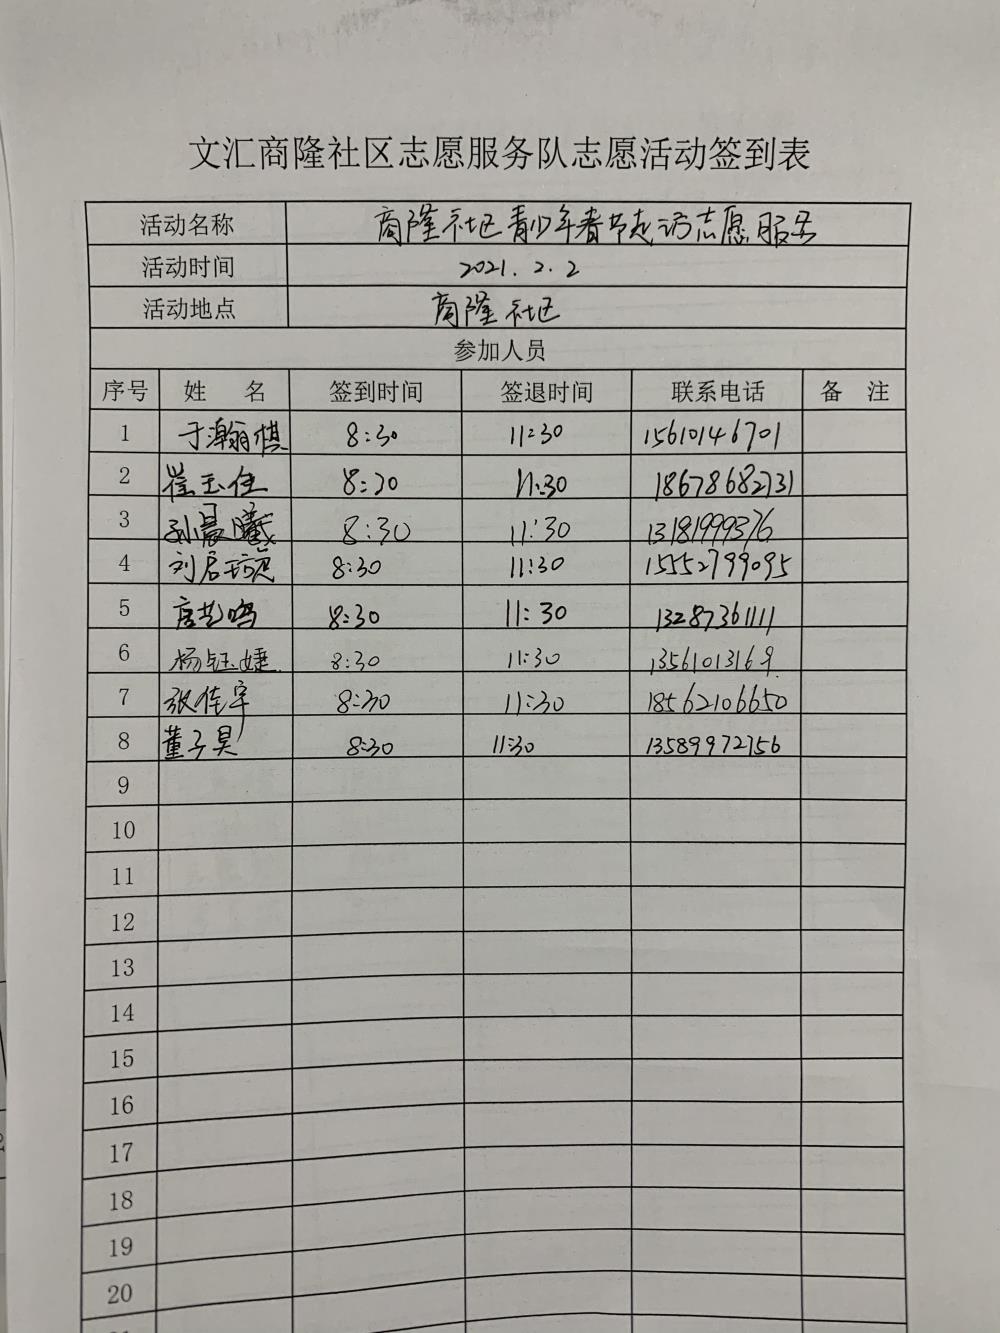 文汇商隆社区志愿服务队志愿活动签到表
活动名称 商隆社区青少年春节走访志愿服务
活动时间 2021.2.2
活动地点 商隆社区
参加人员
序号 姓 名 签到时间 签退时间 联系电话 备 注
1 于瀚翔棋 8:30 11:30 15610146701
2 崔玉佳 8:30 11:30 18678682731
3 孙晨曦 8:30 11:30 13181999376
4 刘君 8:30 11:30 15552799095
5 唐艺鸣 8:30 11:30 13287361111
6 杨钰婕 8:30 11:30 13561013169
7 张佳宇 8:30 11:30 18562106650
8 董子昊 8:30 11:30 13589972756
9
10
11
12
13
14
15
16
17
18
19
20